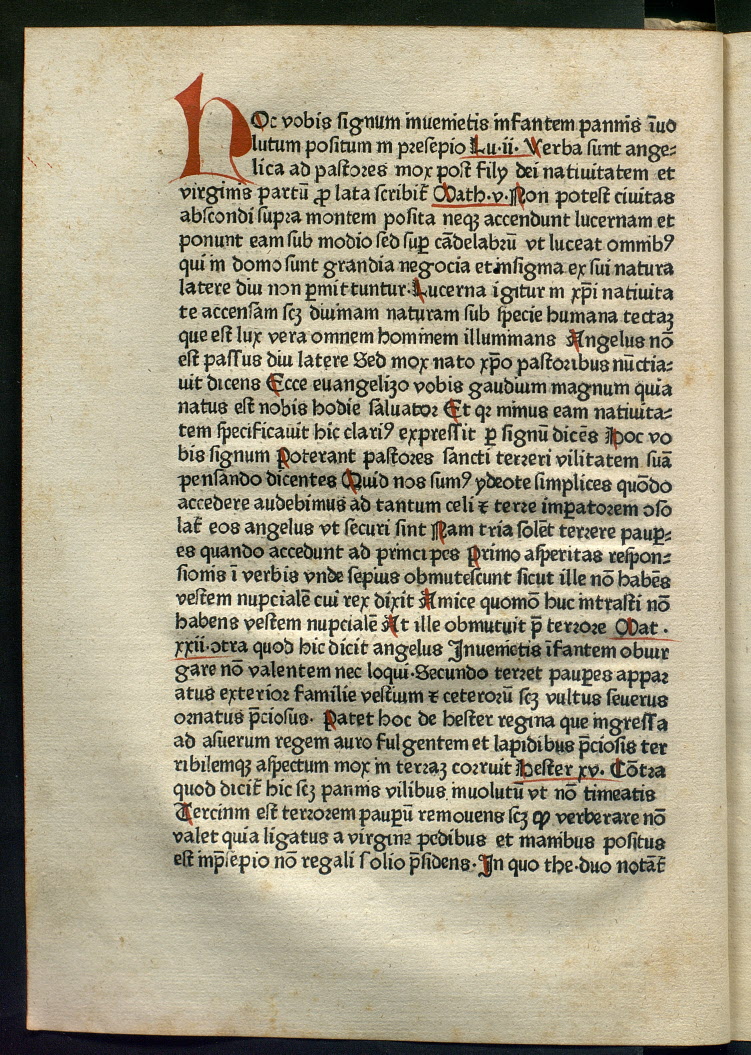 HOc vobis signum inuenietis infantem pannis īuo
lutum positum in presepio Lu·ii· Verba sunt ange⸗
lica ad pastores mox post fily dei natiuitatem et
virginis partū ꝓ lata scribit̄ Math·v· Non potest ciuitas
abscondi supra montem posita neqꝫ accendunt lucernam et
ponunt eam sub modio sed suꝑ cādelabrū vt luceat omnibꝰ
qui in domo sunt grandia negocia et insignia ex sui natura
latere diu non ꝑmittuntur· Lucerna igitur in xp̄i natiuita
te accensam scꝫ diuinam naturam sub specie humana tectaꝫ
que est lux vera omnem hominem illuminans Angelus nō
est passus diu latere Sed mox nato xp̄o pastoribus nūctia⸗
uit dicens Ecce euangelizo vobis gaudium magnum quia
natus est nobis hodie saluator Et qꝛ minus eam natiuita⸗
tem specificauit hic clariꝰ expressit ꝑ signū dicēs Hoc vo
bis signum Poterant pastores sancti terreri vilitatem suā
pensando dicentes Quid nos sumꝰ ydeote simplices quōdo
accedere audebimus ad tantum celi ⁊ terre imꝑatorem ↄso
lat̄ eos angelus vt securi sint Nam tria solēt terrere pauꝑ⸗
es quando accedunt ad principes Primo asperitas respon⸗
sionis ī verbis vnde sepius obmutescunt sicut ille nō habēs
vestem nupcialē cui rex dixit Amice quomō huc intrasti nō
habens vestem nupcialē At ille obmutuit p̄ terrore Mat·
xxii·ↄtra quod hic dicit angelus Inuenietis īfantem obuir
gare nō valentem nec loqui·Secundo terret pauꝑes appar
atus exterior familie vestium ⁊ ceterorū scꝫ vultus seuerus
ornatus p̄ciosus· Patet hoc de hester regina que ingressa
ad asuerum regem auro fulgentem et lapidibus p̄ciosis ter
ribilemqꝫ aspectum mox in terraꝫ corruit Hester xv· Cōtra
quod dicit̄ hic scꝫ pannis vilibus inuolutū vt nō timeatis
Tercium est terrorem pauꝑū remouens scꝫ ꝙ verberare nō
valet quia ligatus a virgine pedibus et manibus positus
est inp̄sepio nō regali solio p̄sidens· In quo the·duo notāt̄